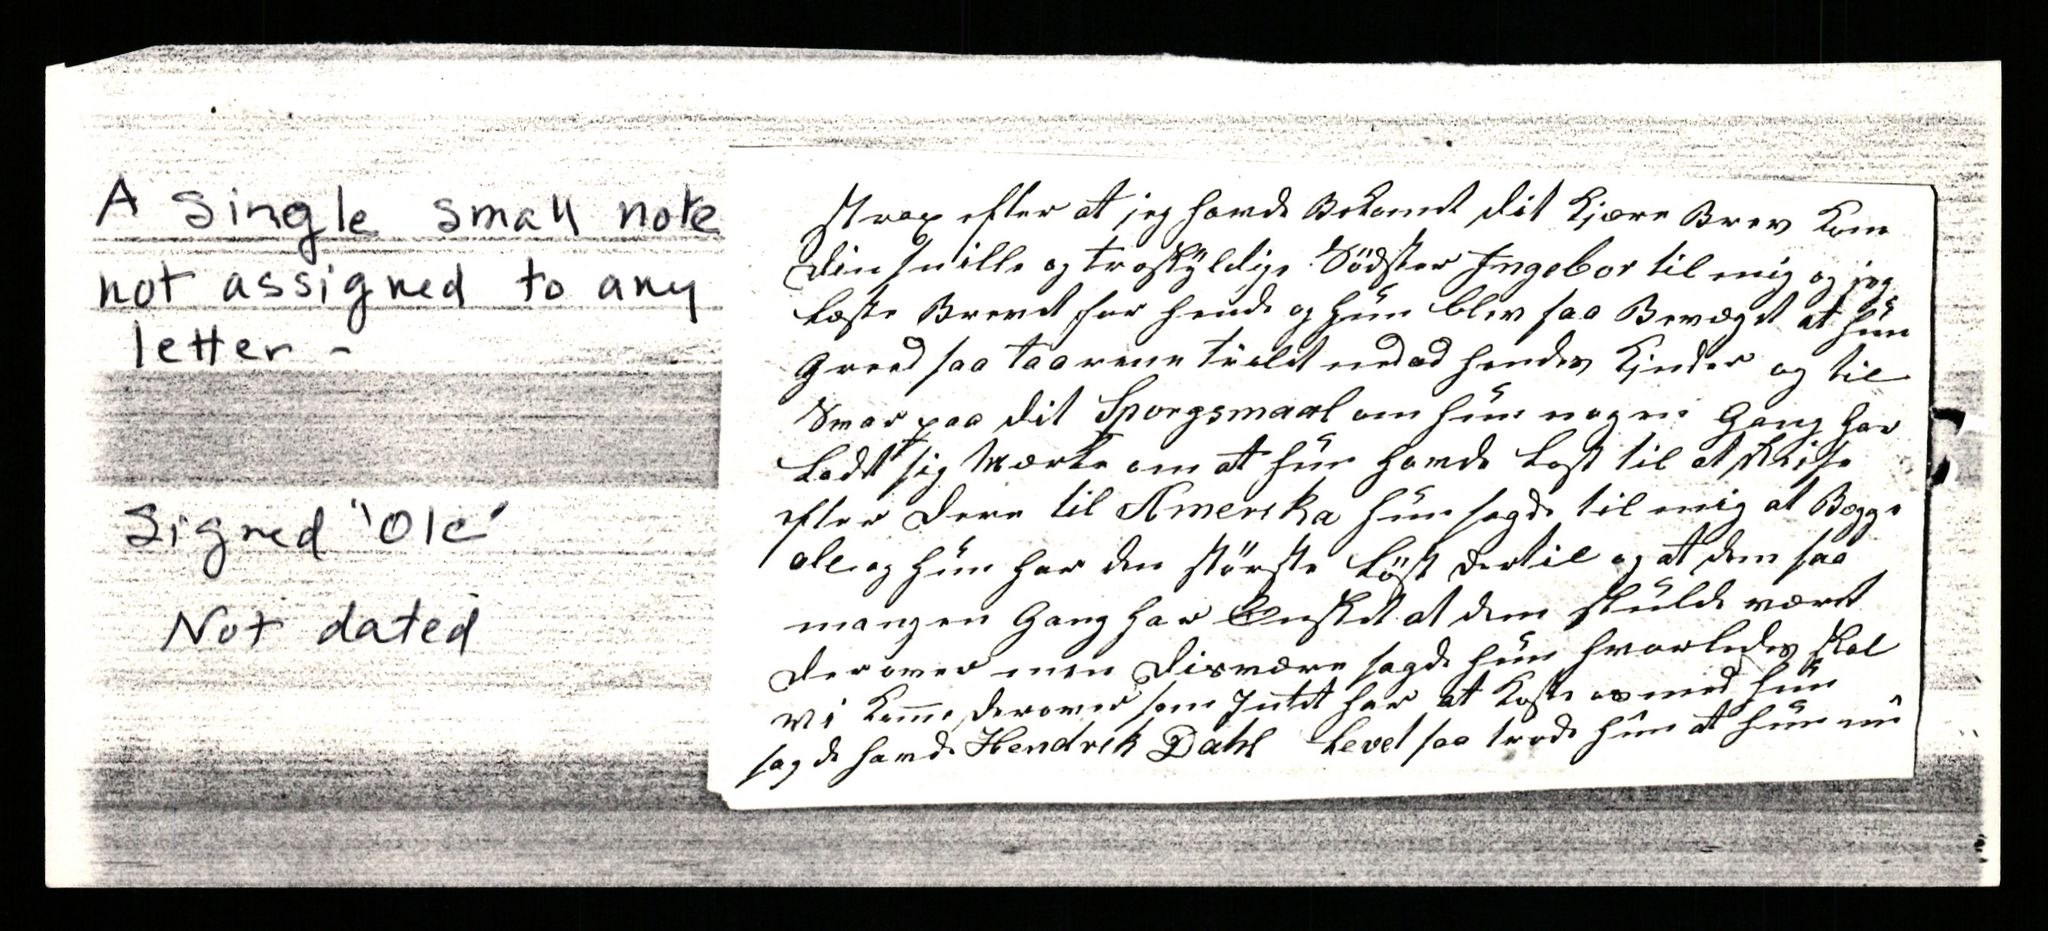 A single small note
not assigned to any
letter -
Signed "Ole"
Not dated
strax efter at jeg havde Bekomet dit Kjære Brev kom
din snille og troskyldige Södster Ingebor til mig og jeg
læste Brevet for hende og hun blev saa Bevæget at hun
Greed saa taarene trilet nedad hendes Kinder og til
Svar paa dit Sporgsmaal om hun nogen Gang har
Ladt sig Mærke om at hun havde Lost til at Reise
efter Dere til Amerika hun sagde til mig at Begge
ole og hun har den störste Löst dertil og at dem saa
mangen Gang har Ønsket at dem skulde været
derover men Disværre sagde hun hvorledes skal
vi komme derover som Intet har at Koste os med hun
sagde havde Hendrek Dahl Levet saa trode hun at hun nu